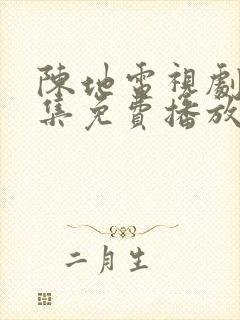 陳地雷視劇
集免費播放
二月生